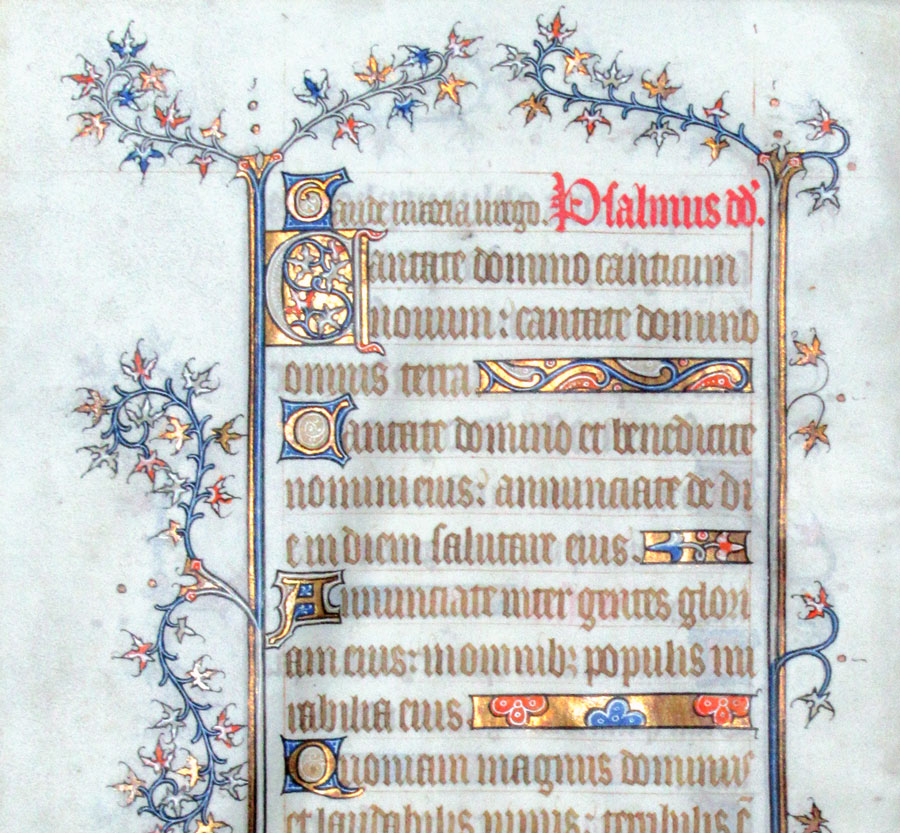 Gaude maria uirgo. Psalmus dd'.
Cantate domino canticum
nouum: cantate domino
omnis terra
Cantate domino et benedicite
nomini eius: annunciate de di
e in diem salutare eius.
Annunciate inter gentes glori
am eius: in omnib; populis mi
rabilia eius
Quoniam magnus dominus
et laudabilis nimis: terribilis